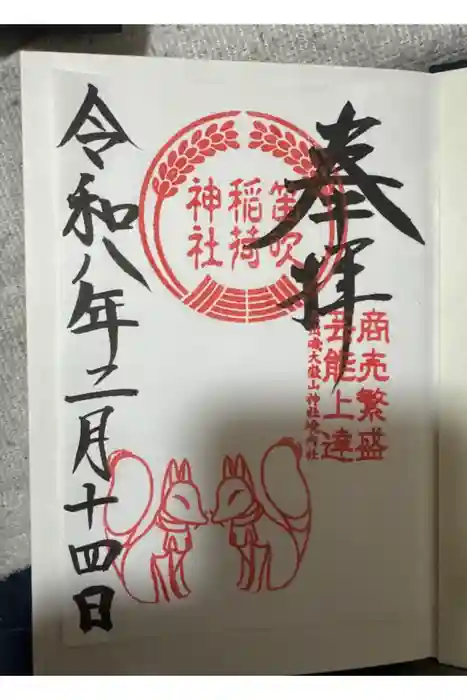 奉拝
商売繁盛
芸能上達
磯大嶽山神社境内社
笛吹
稲荷
神社
令和八年二月十四日